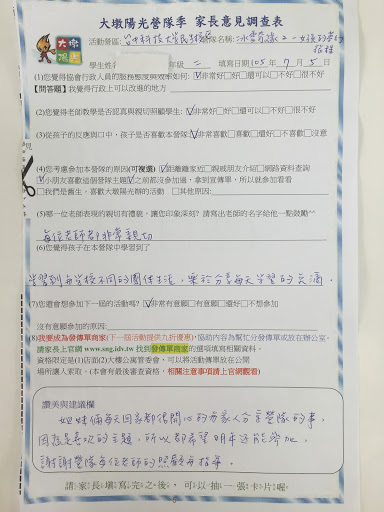 大墩陽光營隊季 家長意見調查表
大墩
陽光
活動營區: 營隊名稱: 冰雪奇緣2
學生姓名 年級 二 填寫日期 105 年 7 月 5 日
(1)您覺得協會行政人員的服務態度與效率如何: ☑非常好□好□還可以□不好□很不好
【問答題】我覺得行政上可以改進的地方
(2)您覺得老師教學是否認真與親切照顧學生: ☑非常好□好□還可以□不好□很不好
(3)從孩子的反應與口中,孩子是否喜歡本營隊☑非常喜歡□喜歡□還好□不喜歡□沒意見
(4)您考慮參加本營隊的原因(可複選) ☑距離離家近□親戚朋友介紹□網路資料查詢
☑小朋友喜歡這個營隊主題☑之前都沒參加過,拿到宣傳單,所以就參加看看
□我們是舊生,喜歡大墩陽光辦的活動 □其他原因:
(5)哪一位老師表現的親切有禮貌,讓您印象深刻? 請寫出老師的名字給他一點鼓勵^^
每位老師都非常親切
(6)您覺得孩子在本營隊中學習到了
學習到與學校不同的團体生活,樂於分享每天學習的點滴.
(7)您還會想參加下一屆的活動嗎? ☑非常有意願□有意願□還好□不想參加
沒有意願參加的原因:
(8)我要成為發傳單商家(下一屆活動提供九折優惠),協助內容為幫忙分發傳單或放在辦公室,
請家長上官網 www.sng.idv.tw 找到發傳單商家的選項填寫相關資料。
資格限定是(1)店面(2)大樓公寓管委會,可以將活動傳單放在公開
場所讓人索取。(本會有最後審查資格,相關注意事項請上官網觀看)
讚美與建議欄
姐妹倆每天回家都很開心的與家人分享營隊的事,
因為是喜歡的主題,所以都希望明年還能參加,
謝謝營隊每位老師的照顧与指導.
請家長填寫完之後,可以抽一張卡片喔